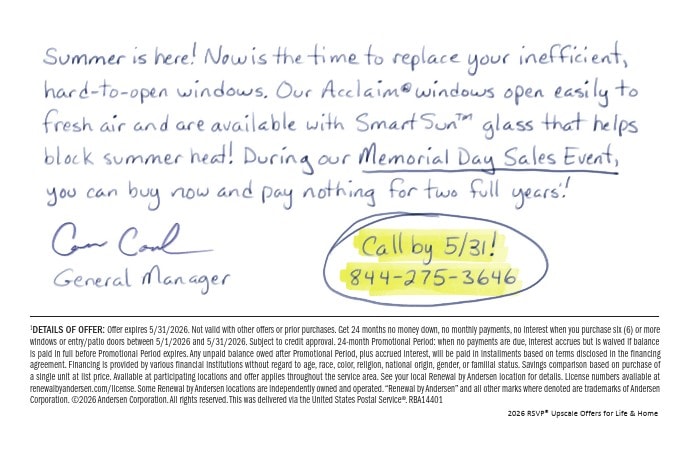 Summer is here! Now is the time to replace your inefficient,
hard-to-open windows. Our Acclaim® windows open easily to
fresh air and are available with SmartSun™ glass that helps
block summer heat! During our Memorial Day Sales Event,
you can buy now and pay nothing for two full years¹!
Call by 5/31!
General Manager
844-275-3646
¹DETAILS OF OFFER: Offer expires 5/31/2026. Not valid with other offers or prior purchases. Get 24 months no money down, no monthly payments, no interest when you purchase six (6) or more
windows or entry/patio doors between 5/1/2026 and 5/31/2026. Subject to credit approval. 24-month Promotional Period: when no payments are due, interest accrues but is waived if balance
is paid in full before Promotional Period expires. Any unpaid balance owed after Promotional Period, plus accrued interest, will be paid in installments based on terms disclosed in the financing
agreement. Financing is provided by various financial institutions without regard to age, race, color, religion, national origin, gender, or familial status. Savings comparison based on purchase of
a single unit at list price. Available at participating locations and offer applies throughout the service area. See your local Renewal by Andersen location for details. License numbers available at
renewalbyandersen.com/license. Some Renewal by Andersen locations are independently owned and operated. "Renewal by Andersen" and all other marks where denoted are trademarks of Andersen
Corporation. ©2026 Andersen Corporation. All rights reserved. This was delivered via the United States Postal Service®. RBA14401
2026 RSVP® Upscale Offers for Life & Home